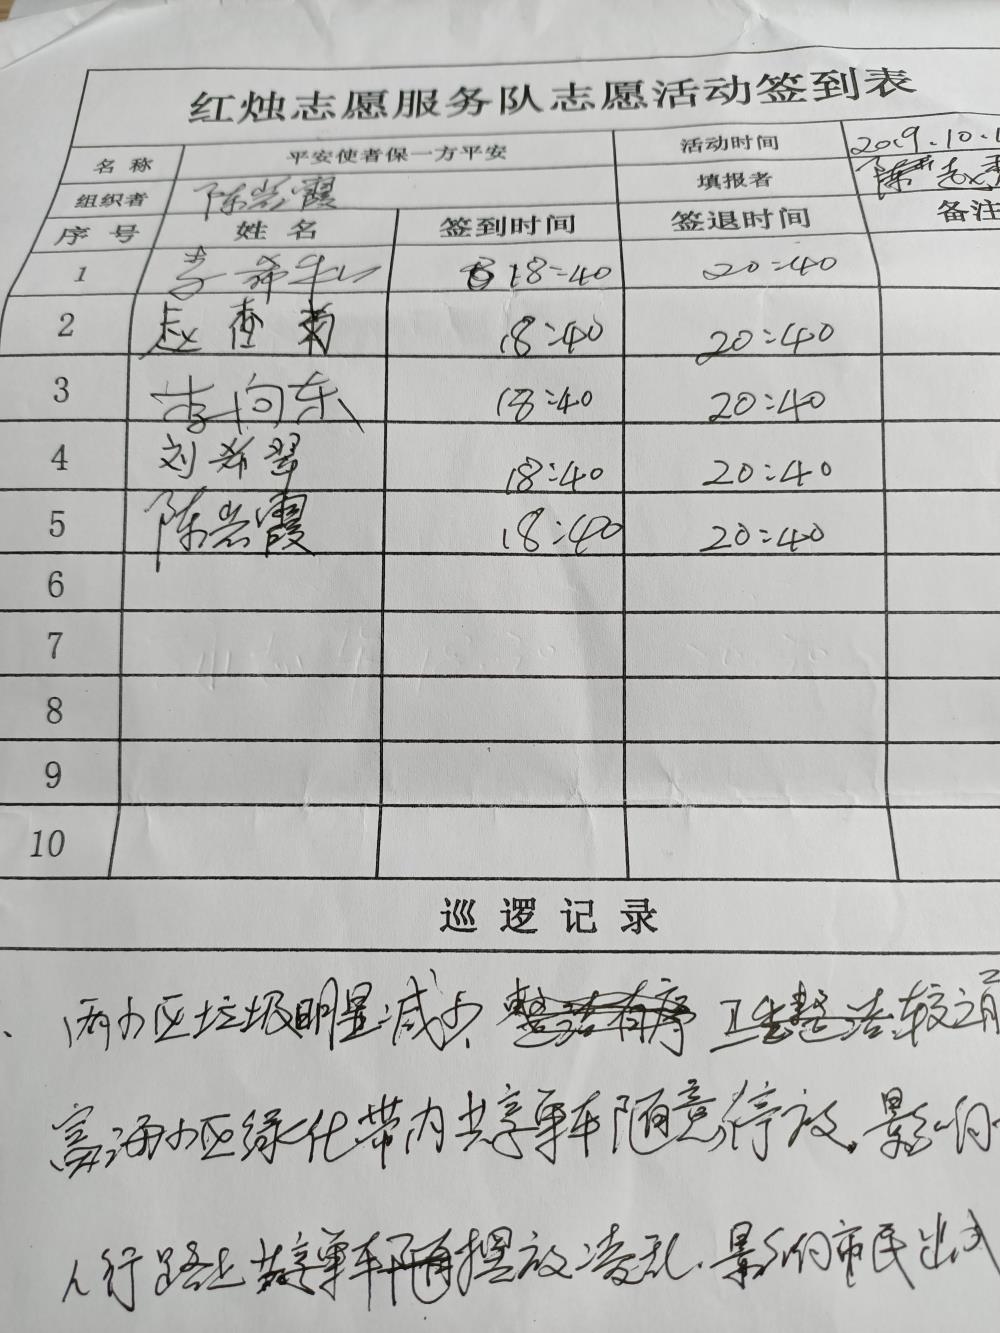 红烛志愿服务队志愿活动签到表
名称 平安使者保一方平安 活动时间 2019.10.1
组织者 陈岩霞 填报者 陈
序号 姓名 签到时间 签退时间 备注
1 李 18:40 20:40
2 赵 18:40 20:40
3 李向东 18:40 20:40
4 刘希翠 18:40 20:40
5 陈岩霞 18:40 20:40
6
7
8
9
10
巡逻记录
、两小区垃圾明显减少 整洁有序 卫生整洁较之前
富海小区绿化带内共享单车随意停放,影响
人行路上共享单车随摆放凌乱,影响市民出